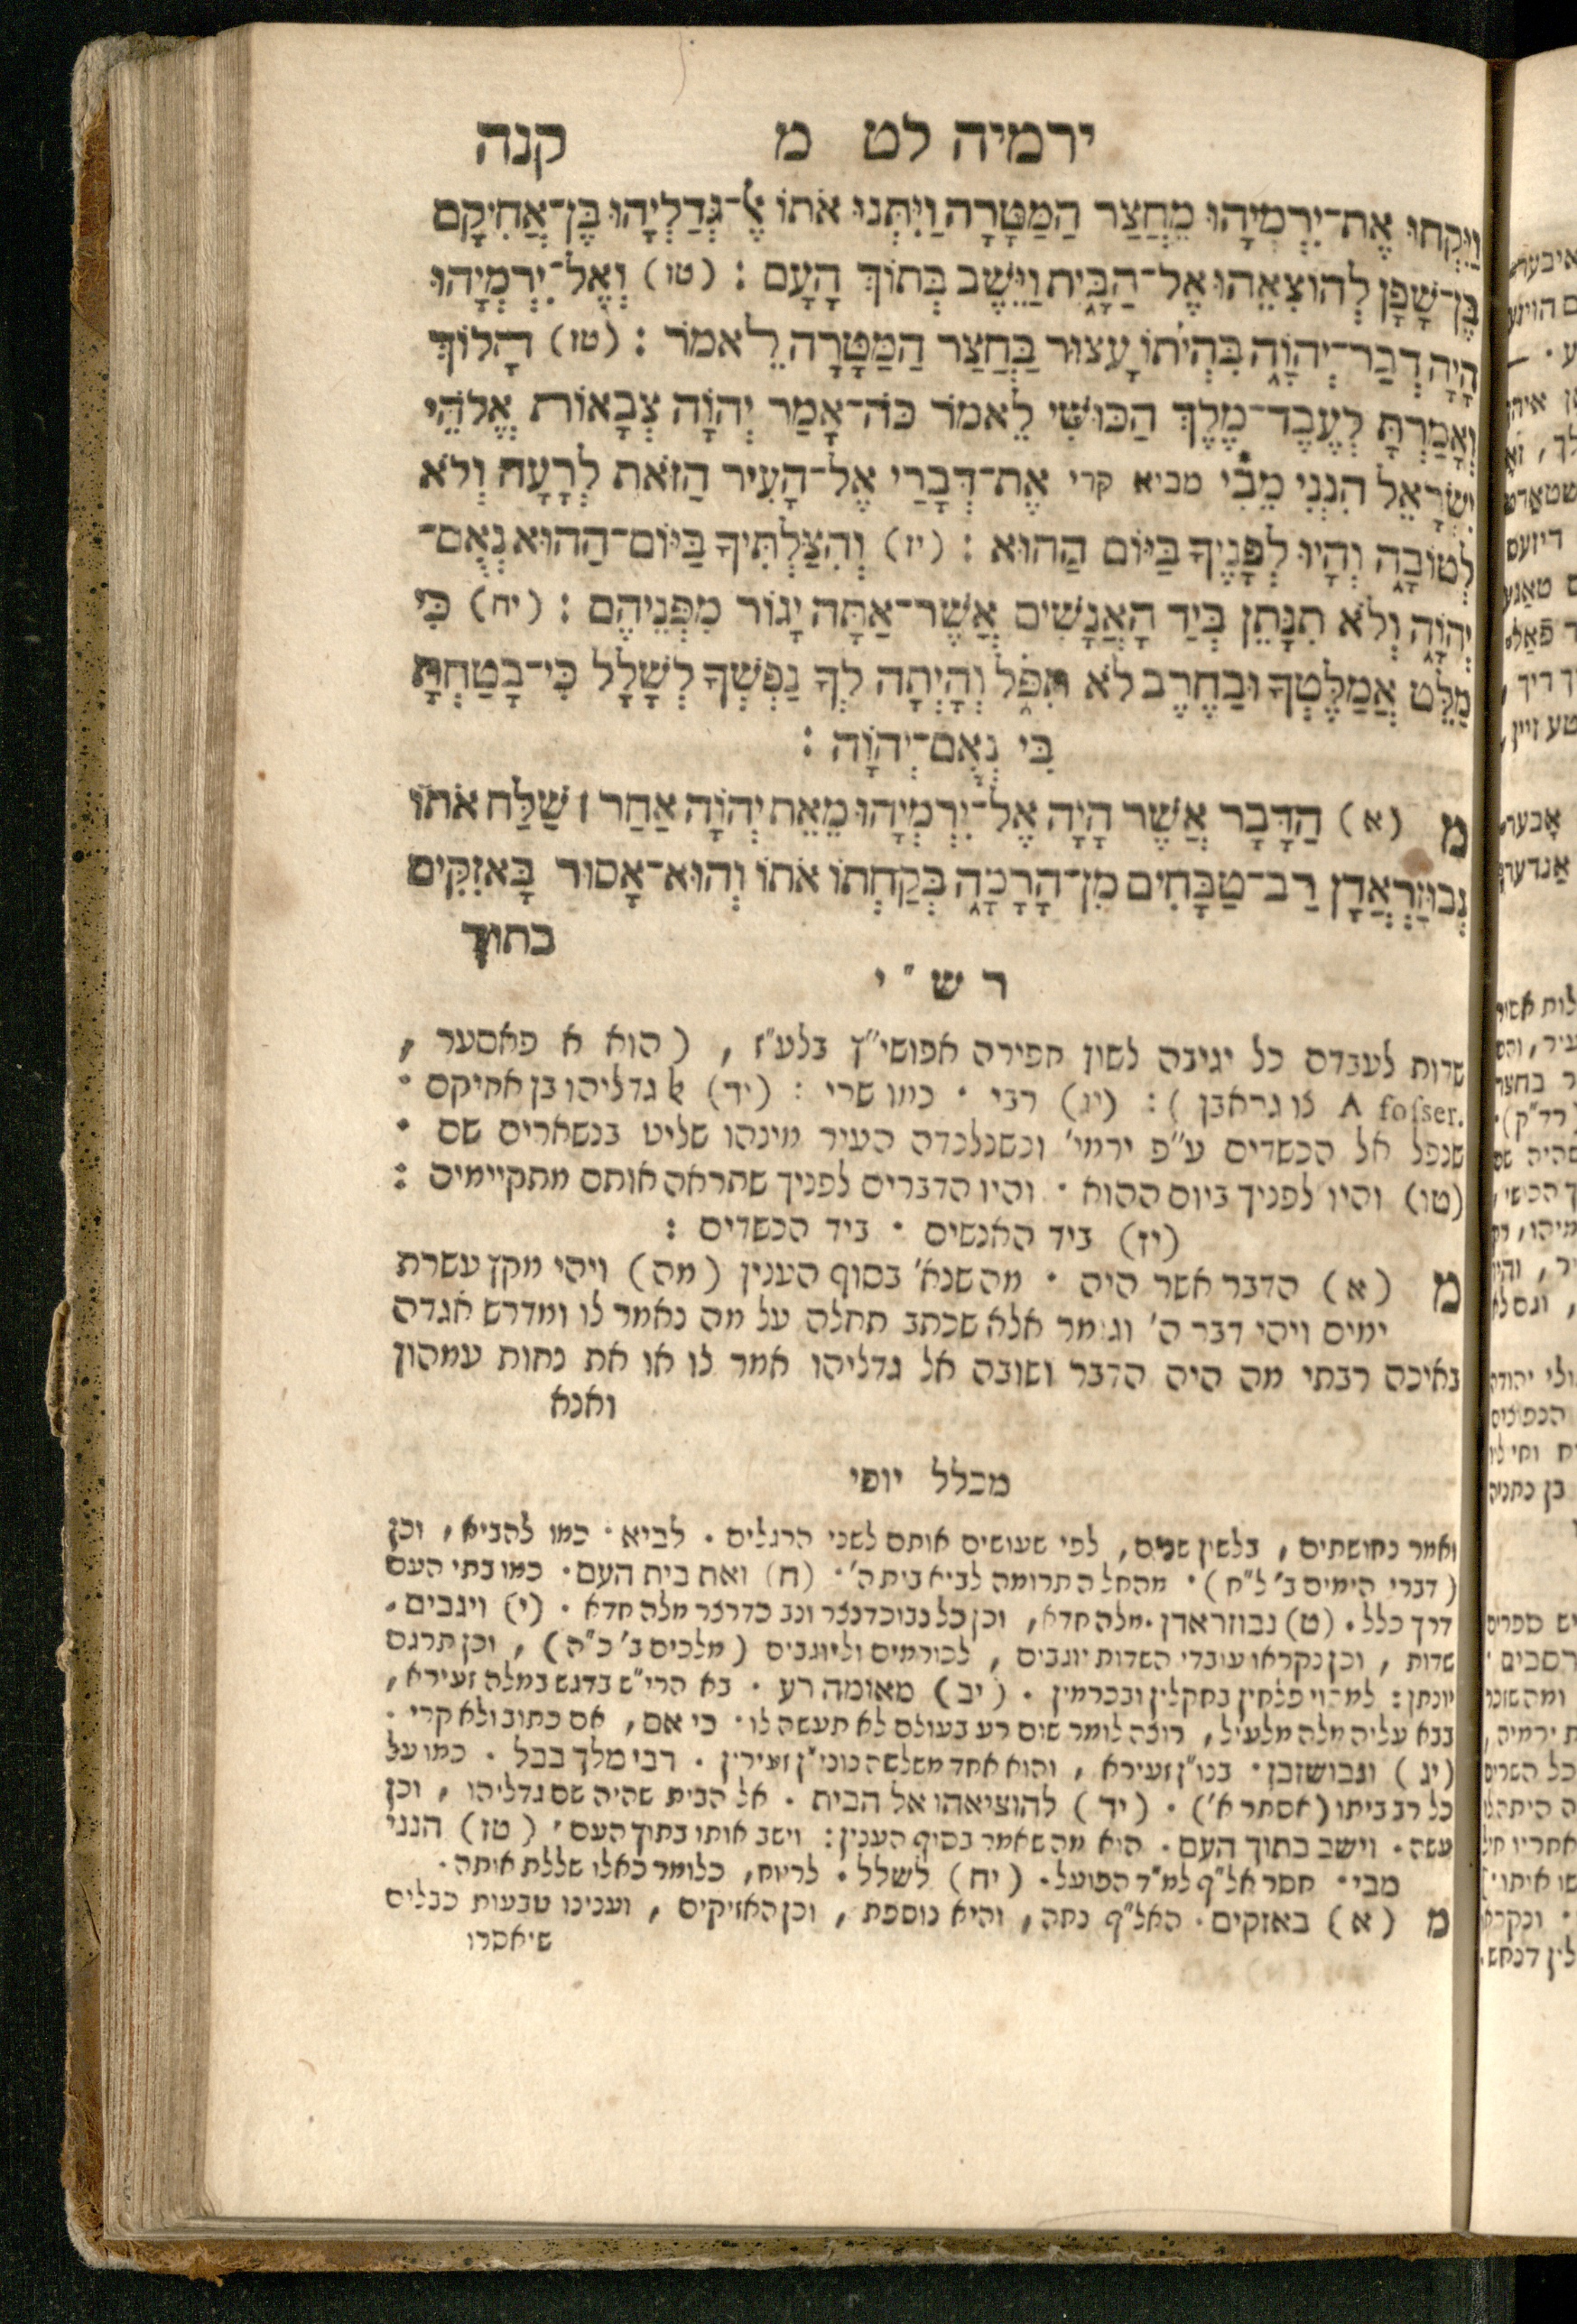 ירמיה לט מ קנה
וַיִּקְחוּ אֶת־יִרְמְיָהוּ מֵחֲצַר הַמַּטָּרָה וַיִּתְּנוּ אֹתוֹ אֶל־גְּדַלְיָהוּ בֶּן־אֲחִיקָם
בֶּן־שָׁפָן לְהוֹצִאֵהוּ אֶל־הַבָּיִת וַיֵּשֶׁב בְּתוֹךְ הָעָם : (טו) וְאֶל־יִרְמְיָהוּ
הָיָה דְבַר־יְהוָה בִּהְיֹתוֹ עָצוּר בַּחֲצַר הַמַּטָּרָה לֵאמֹר : (טז) הָלוֹךְ
וְאָמַרְתָּ לְעֶבֶד־מֶלֶךְ הַכּוּשִׁי לֵאמֹר כֹּה־אָמַר יְהוָה צְבָאוֹת אֱלֹהֵי
יִשְׂרָאֵל הִנְנִי מֵבִי מביא קרי אֶת־דְּבָרַי אֶל־הָעִיר הַזֹּאת לְרָעָה וְלֹא
לְטוֹבָה וְהָיוּ לְפָנֶיךָ בַּיּוֹם הַהוּא : (יז) וְהִצַּלְתִּיךָ בַיּוֹם־הַהוּא נְאֻם־
יְהוָה וְלֹא תִנָּתֵן בְּיַד הָאֲנָשִׁים אֲשֶׁר־אַתָּה יָגוֹר מִפְּנֵיהֶם : (יח) כִּי
מַלֵּט אֲמַלֶּטְךָ וּבַחֶרֶב לֹא תִפֹּל וְהָיְתָה לְךָ נַפְשְׁךָ לְשָׁלָל כִּי־בָטַחְתָּ
בִּי נְאֻם־יְהוָה :
מ (א) הַדָּבָר אֲשֶׁר הָיָה אֶל־יִרְמְיָהוּ מֵאֵת יְהוָה אַחַר ׀ שַׁלַּח אֹתוֹ
נְבוּזַרְאֲדָן רַב־טַבָּחִים מִן־הָרָמָה בְּקַחְתּוֹ אֹתוֹ וְהוּא־אָסוּר בָּאזִקִּים
בתוך
ר ש "י
שדות לעבדם כל יגיבה לשון חפירה אפושי"ן בלע"ז , (הוא א פאסער ,
A fosser. צו גראבן ) : (יג) רבי · כמו שרי : (יד) אל גדליהו בן אחיקם ·
שנפל אל הכשדים ע"פ ירמי' וכשנלכדה העיר מינהו שליט בנשארים שם ·
(טו) והיו לפניך ביום ההוא · והיו הדברים לפניך שתראה אותם מתקיימים :
(יז) ביד האנשים · ביד הכשדים :
מ (א) הדבר אשר היה · מה שנא' בסוף הענין (מה) ויהי מקץ עשרת
ימים ויהי דבר ה' וגומר אלא שכתב תחלה על מה נאמר לו ומדרש אגדה
באיכה רבתי מה היה הדבר ושובה אל גדליהו אמר לו או את נחות עמהון
ואנא
מכלל יופי
ואמר נחושתים , בלשון שנים, לפי שעושים אותם לשני הרגלים · לביא · כמו להביא , וכן
(דברי הימים ב' ל"ח) · מהחל התרומה לביא בית ה' · (ח) ואת בית העם · כמו בתי העם
דרך כלל · (ט) נבוזראדן · מלה חדא , וכן כל נבוכדנצר ונב כדרצר מלה חדא · (י) ויגבים ·
שדות , וכן נקראו עובדי השדות יוגבים , לכורמים וליוגבים (מלכים ב' כ"ה) , וכן תרגם
יונתן : למהוי פלחין בחקלין ובכרמין · (יב) מאומה רע · בא הרי"ש בדגש במלה זעירא ,
בבא עליה מלה מלעיל , רוצה לומר שום רע בעולם לא תעשה לו · כי אם , אם כתוב ולא קרי ·
(יג) ונבושזבן · בנו"ן זעירא , והוא אחד משלשה נוני"ן זעירין · רבי מלך בבל · כמו על
כל רב ביתו (אסתר א') · (יד) להוציאהו אל הבית · אל הבית שהיה שם גדליהו , וכן
עשה · וישב בתוך העם · הוא מה שאמר בסוף הענין : וישב אותו בתוך העם · (טז) הנני
מבי · חסר אל"ף למ"ד הפועל · (יח) לשלל · לריוח, כלומר כאלו שללת אותה ·
מ (א) באזקים · האל"ף נחה , והיא נוספת , וכן האזיקים , וענינו טבעות כבלים
שיאסרו